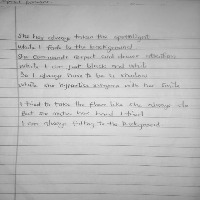 She has always taken the spotlight
While I fade to the background
She commands respect and draws attention
While I am just black and white
So I always have to be in shadow
While she hypnotise everyone with her smile
I tried to take the floor like she always do
But no matter how hard I tried
I am always fading to the background